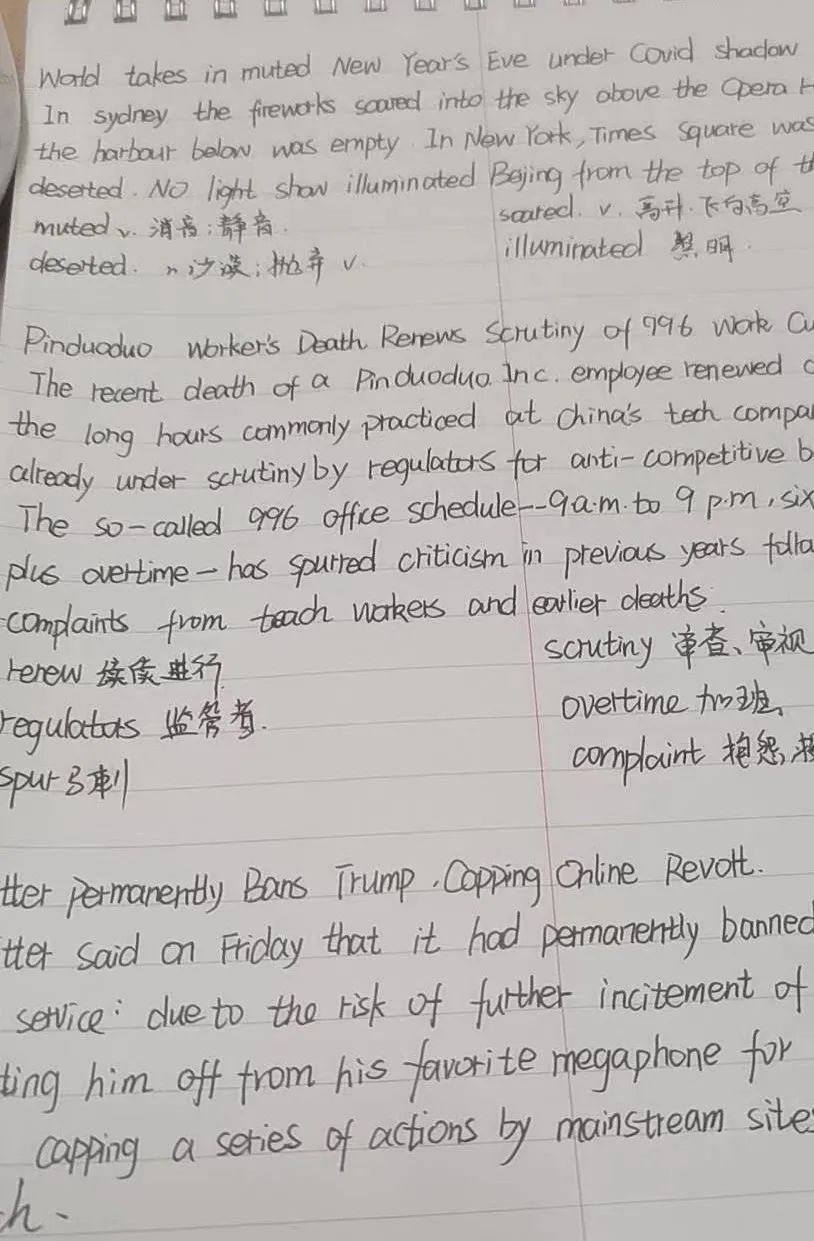 World takes in muted New Year's Eve under Covid shadow
In sydney the fireworks soared into the sky above the Opera H
the harbour below was empty. In New York, Times Square was
deserted. NO light show illuminated Bejing from the top of th
muted v. 消音;静音.
soared. v. 高升.飞向高空
deserted. n 沙漠;抛弃 v.
illuminated 照明.
Pinduoduo Worker's Death Renews Scrutiny of 996 Work Cu
The recent death of a Pinduoduo Inc. employee renewed c
the long hours commonly practiced at China's tech compa
already under scrutiny by regulators for anti-competitive b
The so-called 996 office schedule--9a.m. to 9 p.m, six
plus overtime-has spurred criticism in previous years follo
complaints from teach workers and earlier deaths.
renew 续续进行
scrutiny 审查、审视
regulators 监管者.
overtime 加班
spur 马刺
complaint 抱怨,
tter permanently Bans Trump, Capping Online Revolt.
tter said on Friday that it had permanently banned
service: due to the risk of further incitement of
ting him off from his favorite megaphone for
capping a series of actions by mainstream site
h.